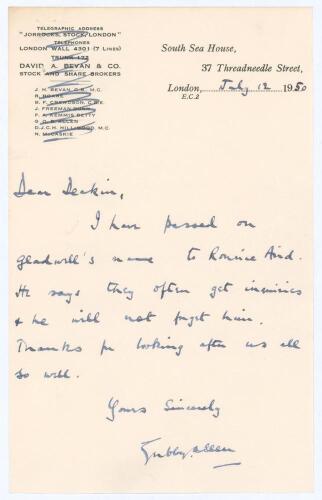 TELEGRAPHIC ADDRESS
"JORROCKS, STOCK, LONDON"
TELEPHONES
LONDON WALL 4301 (7 LINES)
TRUNK 123
DAVID A. BEVAN & CO.
STOCK AND SHARE BROKERS
J. H. BEVAN, C.B., M.C.
R. HOARE
B. F. CREWDSON, C.B.E.
J. FREEMAN
F. A. KEMMIS BETTY
G. O. B. ALLEN
D.J.C.H. HILLWOOD, M.C.
N. McCASKIE
South Sea House,
37 Threadneedle Street,
London, July 12 1950
E.C.2
Dear Deakin,
I have passed on
Gladwell's name to Ronnie Aird.
He says they often get inquiries
& he will not forget him.
Thanks for looking after us all
so well.
Yours Sincerely
Gubby Allen